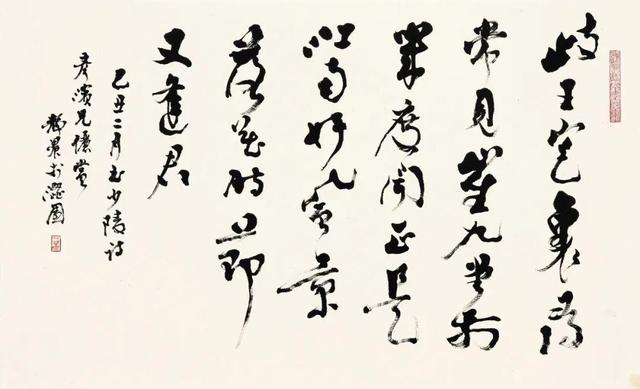 岐王宅裏尋
常見崔九堂前
幾度聞正是
江南好風景
落花時節
又逢君
己丑二月書少陵詩
彥濱兄賞
於園